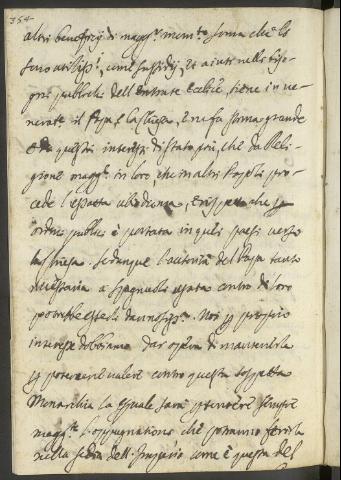 354
altri beneficij di magg.r mom.to senza che la
sono utiliss.i, come sussidij, et aiuti nelle biso-
gni publiche dell'entrate Eccl.e, viene in ve-
neratt.e il Papa, e la Chiesa, e ne fa stima grande
e da questi interessi di stato più, che da Reli-
gione magg.re in loro, che in altri Popoli pro-
cede l'esatta ubedienza, e rispetto che per
ordine publico è portata in quelli paesi verso
la Chiesa. Se dunque l'autorità del Papa tanto
necessaria a Spagnuoli usata contro di loro
potrebbe essere dannosiss.a. Noi per proprio
interesse dobbiamo dar opera di mantenerla
per potercene valere contro questa sospetta
Monarchia la quale sarà per temere sempre
magg.te l'oppugnatione che potranno farsi
nella sedia dell'Imperio come è questa del